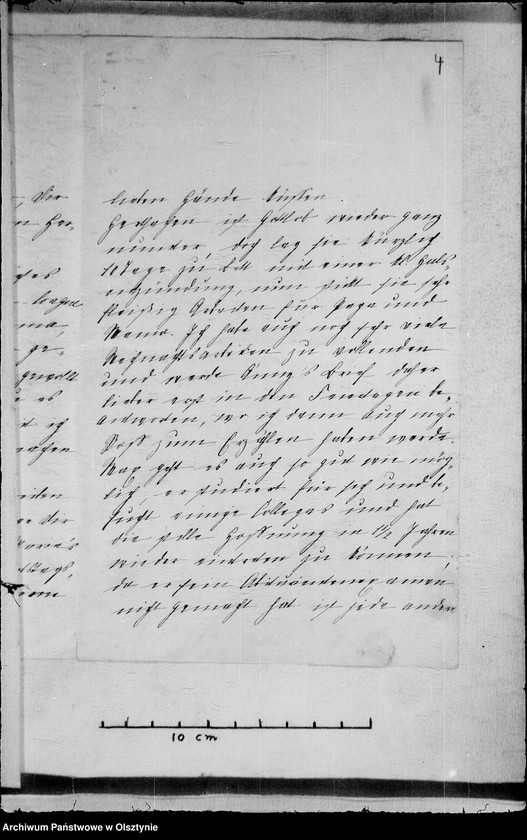 4
lieben Hände küssen.
Herthafen ist Gottlob wieder ganz
munter, doch lag sie kürzlich
8 Tage zu Bett mit einer Hals-
entzündung, nun stickt sie sehr
fleißig Arbeiten für Papa und
Mama. Ich habe auch noch sehr viele
Weihnachtsarbeiten zu vollenden
und werde Brief daher
lieber erst in den Feiertagen be-
antworten, wo ich dann auch mehr
Stoff zum Erzählen haben werde.
Max geht es auch so gut wie mög-
lich, er studiert für sich und be-
sucht einige Colleges und hat
die stille Hoffnung in 1 1/2 Jahren
wieder eintreten zu können;
da er sein Abiturientenexamen
nicht gemacht hat ist jede andere
die
ma-
ge-
gewollt
es
ich
der
10 cm
Archiwum Państwowe w Olsztynie